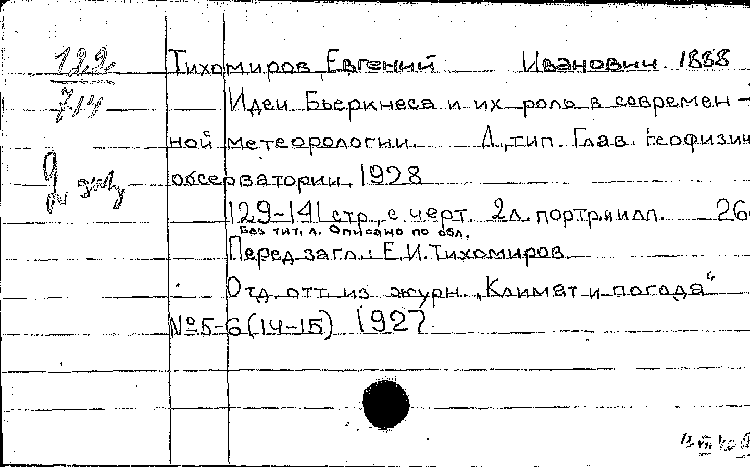 122
714
Тихомиров, Евгений Иванович 1888
Идеи Бьеркнеса и их роль в современ-
ной метеорологии. Л., тип. Глав. геофизич
обсерватории, 1928
129-141 стр. с черт. 2л. портр и илл. 26
Без тит. л. Описано по обл.
Перед загл.: Е.И.Тихомиров
Отд. отт. из журн. „Климат и погода“
№5-6(14-15) 1927